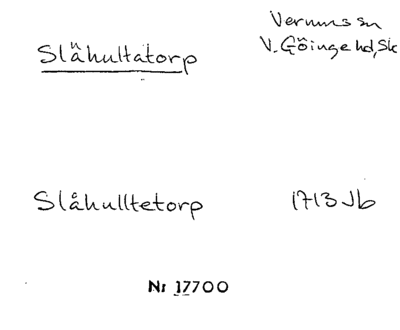 Verums sn
Slähultatorp
V. Göinge hd, Sk
Slåhulltetorp
1713 Jb
Nr 17700